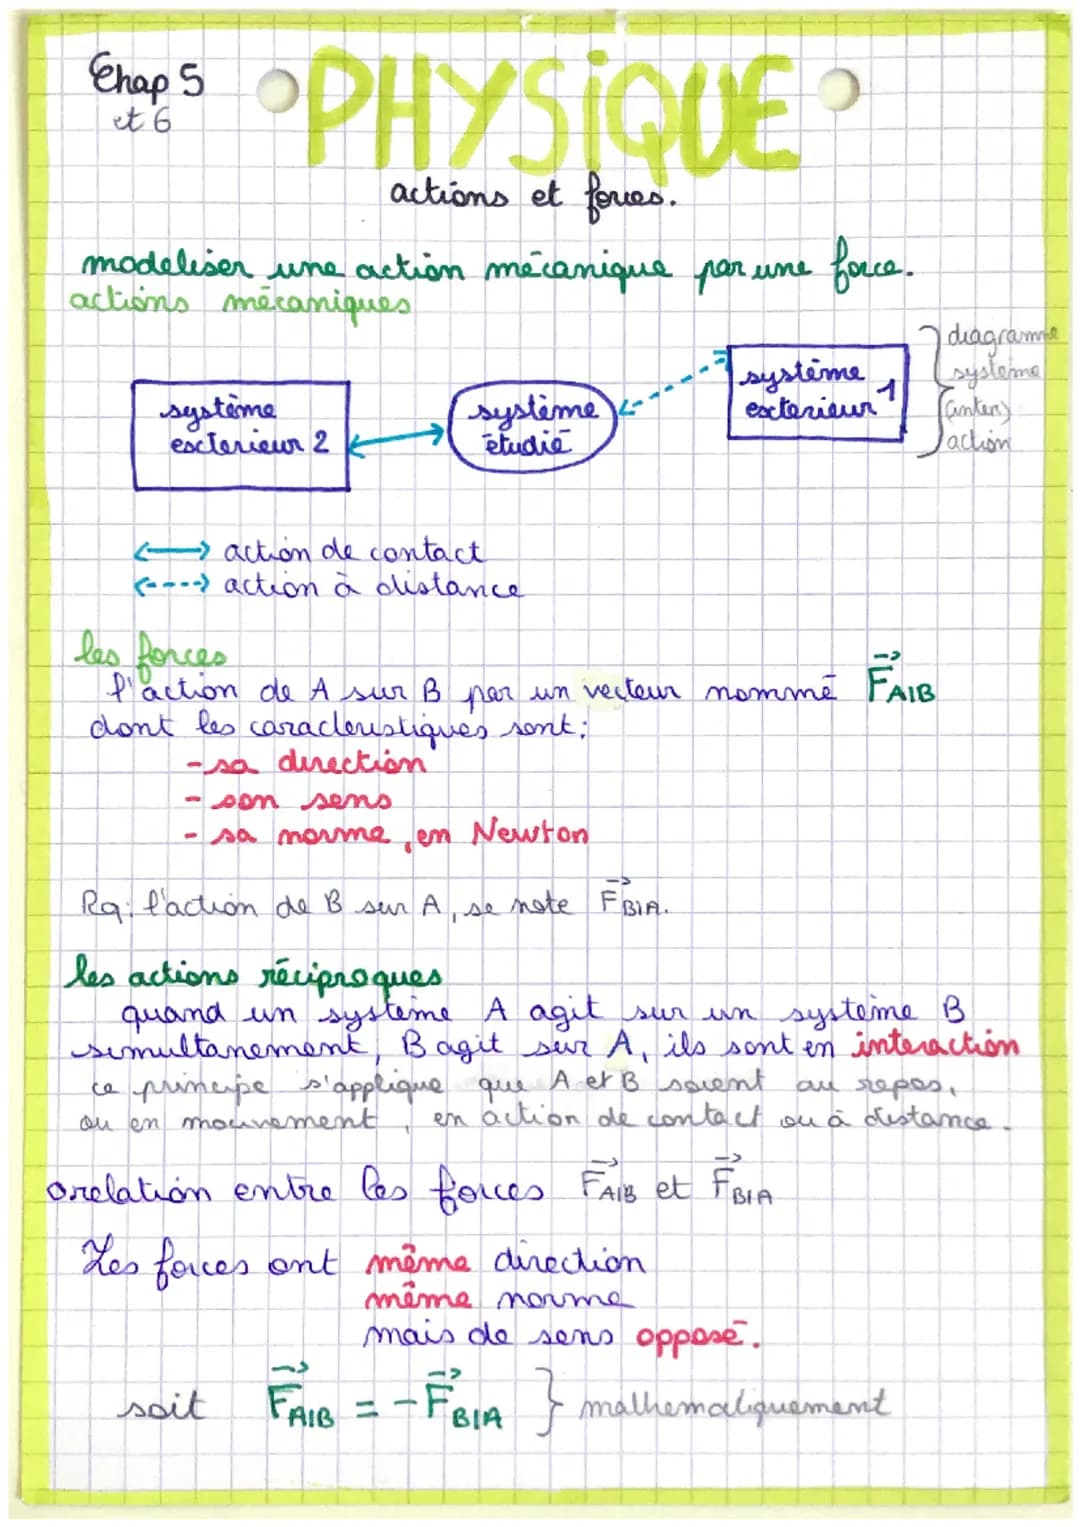 Chap 5
et 6
PHYSiQUE
actions et forces.
modeliser une action mécanique par une force.
actions mécaniques
système
exterieur 2
système
étudié
système
exterieur 1
diagramme
système
(inter)
action
action de contact
action à distance
les forces
l'action de A sur B par un vecteur nommé F⃗A/B
dont les caracteristiques sont:
- sa direction
- son sens
- sa norme, en Newton
Rq: l'action de B sur A, se note F⃗B/A.
les actions réciproques
quand un système A agit sur un système B
simultanement, B agit sur A, ils sont en interaction
ce principe s'applique que A et B soient au repos,
ou en mouvement, en action de contact ou à distance.
relation entre les forces F⃗A/B et F⃗B/A
Les forces ont même direction
même norme
mais de sens opposé.
soit F⃗A/B = -F⃗B/A } mathematiquement